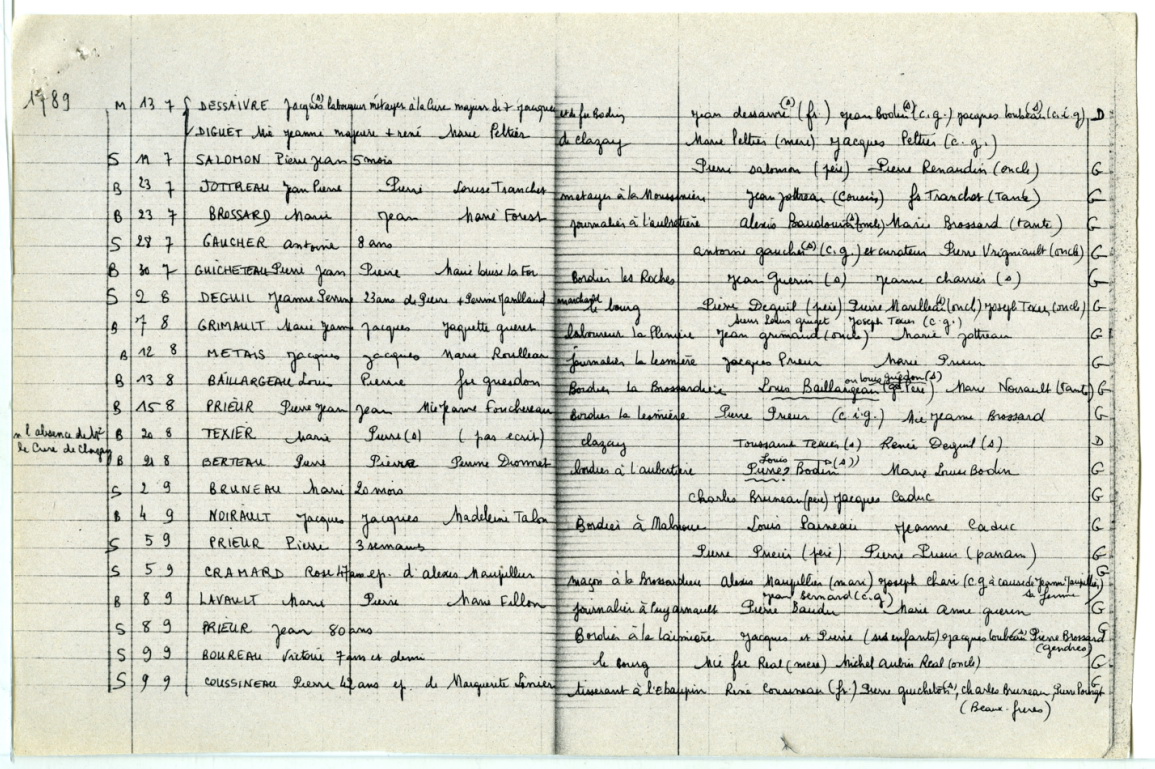 1789
M 13 7 DESSAIVRE Jacques (s) laboureur métayer à la Cure majeur de + Jacques et de fu Bodin Jean dessaivre (s) (fr.) Jean Bodin (s) (c.g.) Jacques Loubeau (s) (c.i.g) D
DIGUET Mie Jeanne majeure + rené Marie Peltier de clazay Marie Peltier (mere) Jacques Peltier (c.g.)
S 11 7 SALOMON Pierre Jean 5 mois Pierre Salomon (père) Pierre Renaudin (oncle) G
B 23 7 JOTTREAU Jean Pierre Pierre Louise Tranchet métayer à la Jean Jottreau (Cousin) fs Tranchot (Tante) G
B 23 7 BROSSARD Marie Jean Marie Forest journalier à l'aubretière Alexis (oncle) Marie Brossard (tante) G
S 28 7 GAUCHER Antoine 8 ans antoine gaucher (s) (c.g.) et curateur Pierre Vrigniault (oncle) G
B 30 7 GUICHETEAU Pierre Jean Pierre Marie Louise Bordier les Roches Jean Guerin (s) Jeanne charrier (s) G
S 2 8 DEGUIL Jeanne Perrine 23 ans de Pierre + Perrine le bourg Pierre Deguil (père) Pierre (oncle) Joseph (oncle) G
B 7 8 GRIMAULT Marie Jeanne Jacques Jaquette laboureur la Jean grimaud (oncle) Marie Jottreau G
Joseph (c.g.)
B 12 8 METAIS Jacques Jacques Marie Roulleau journalier la Jacques Prieur Marie Prieur G
B 13 8 BAILLARGEAU Louis Pierre fse guesdon Bordier la Brossardière Louis Baillargeau (gd Père) Marie Noirault (tante) G
ou louis guesdon (s)
B 15 8 PRIEUR Pierre Jean Jean Mie Jeanne Fouchereau Bordier la Pierre Prieur (c.i.g.) Mie Jeanne Brossard G
en l'absence de Mr le Cure de Clazay B 20 8 TEXIER Marie Pierre (s) (pas ecrit) clazay Toussaint Texier (s) Renée Deguil (s) D
B 21 8 BERTEAU Pierre Pierre Perrine bordier à l'aubertière Pierre? Bodin Marie Louise Bodin G
Louis (s)
S 2 9 BRUNEAU Marie 20 mois Charles Bruneau (père) Jacques Caduc G
B 4 9 NOIRAULT Jacques Jacques Madeleine Talon Bordier à Louis Paineau Jeanne Caduc G
S 5 9 PRIEUR Pierre 3 semaines Pierre Prieur (père) Pierre Prieur (parrain) G
S 5 9 CRAMARD Rose 47 ans ep. d'alexis Maupillier maçon à la Brossardière Alexis Maupillier (mari) Joseph (c.g à cause de Jeanne Maupillier sa femme) G
B 8 9 LAVAULT Marie Pierre Marie Fillon journalier à Puyarnault Pierre Baudu Marie Anne guerin G
Jean Bernard (c.g)
S 8 9 PRIEUR Jean 80 ans Bordier à la Jacques et Pierre (ses enfants) Jacques Loubeau (s) Pierre Brossard (gendres) G
S 9 9 BOUREAU Victoire 7 ans et demi le bourg Mie fse Real (mere) Michel Aubin Real (oncle) G
S 9 9 COUSSINEAU Pierre 42 ans ep. de Marguerite tisserant à l'ebaupin René Coussineau (fr.) Pierre (s), Charles Bruneau, Pierre (Beaux-freres) G